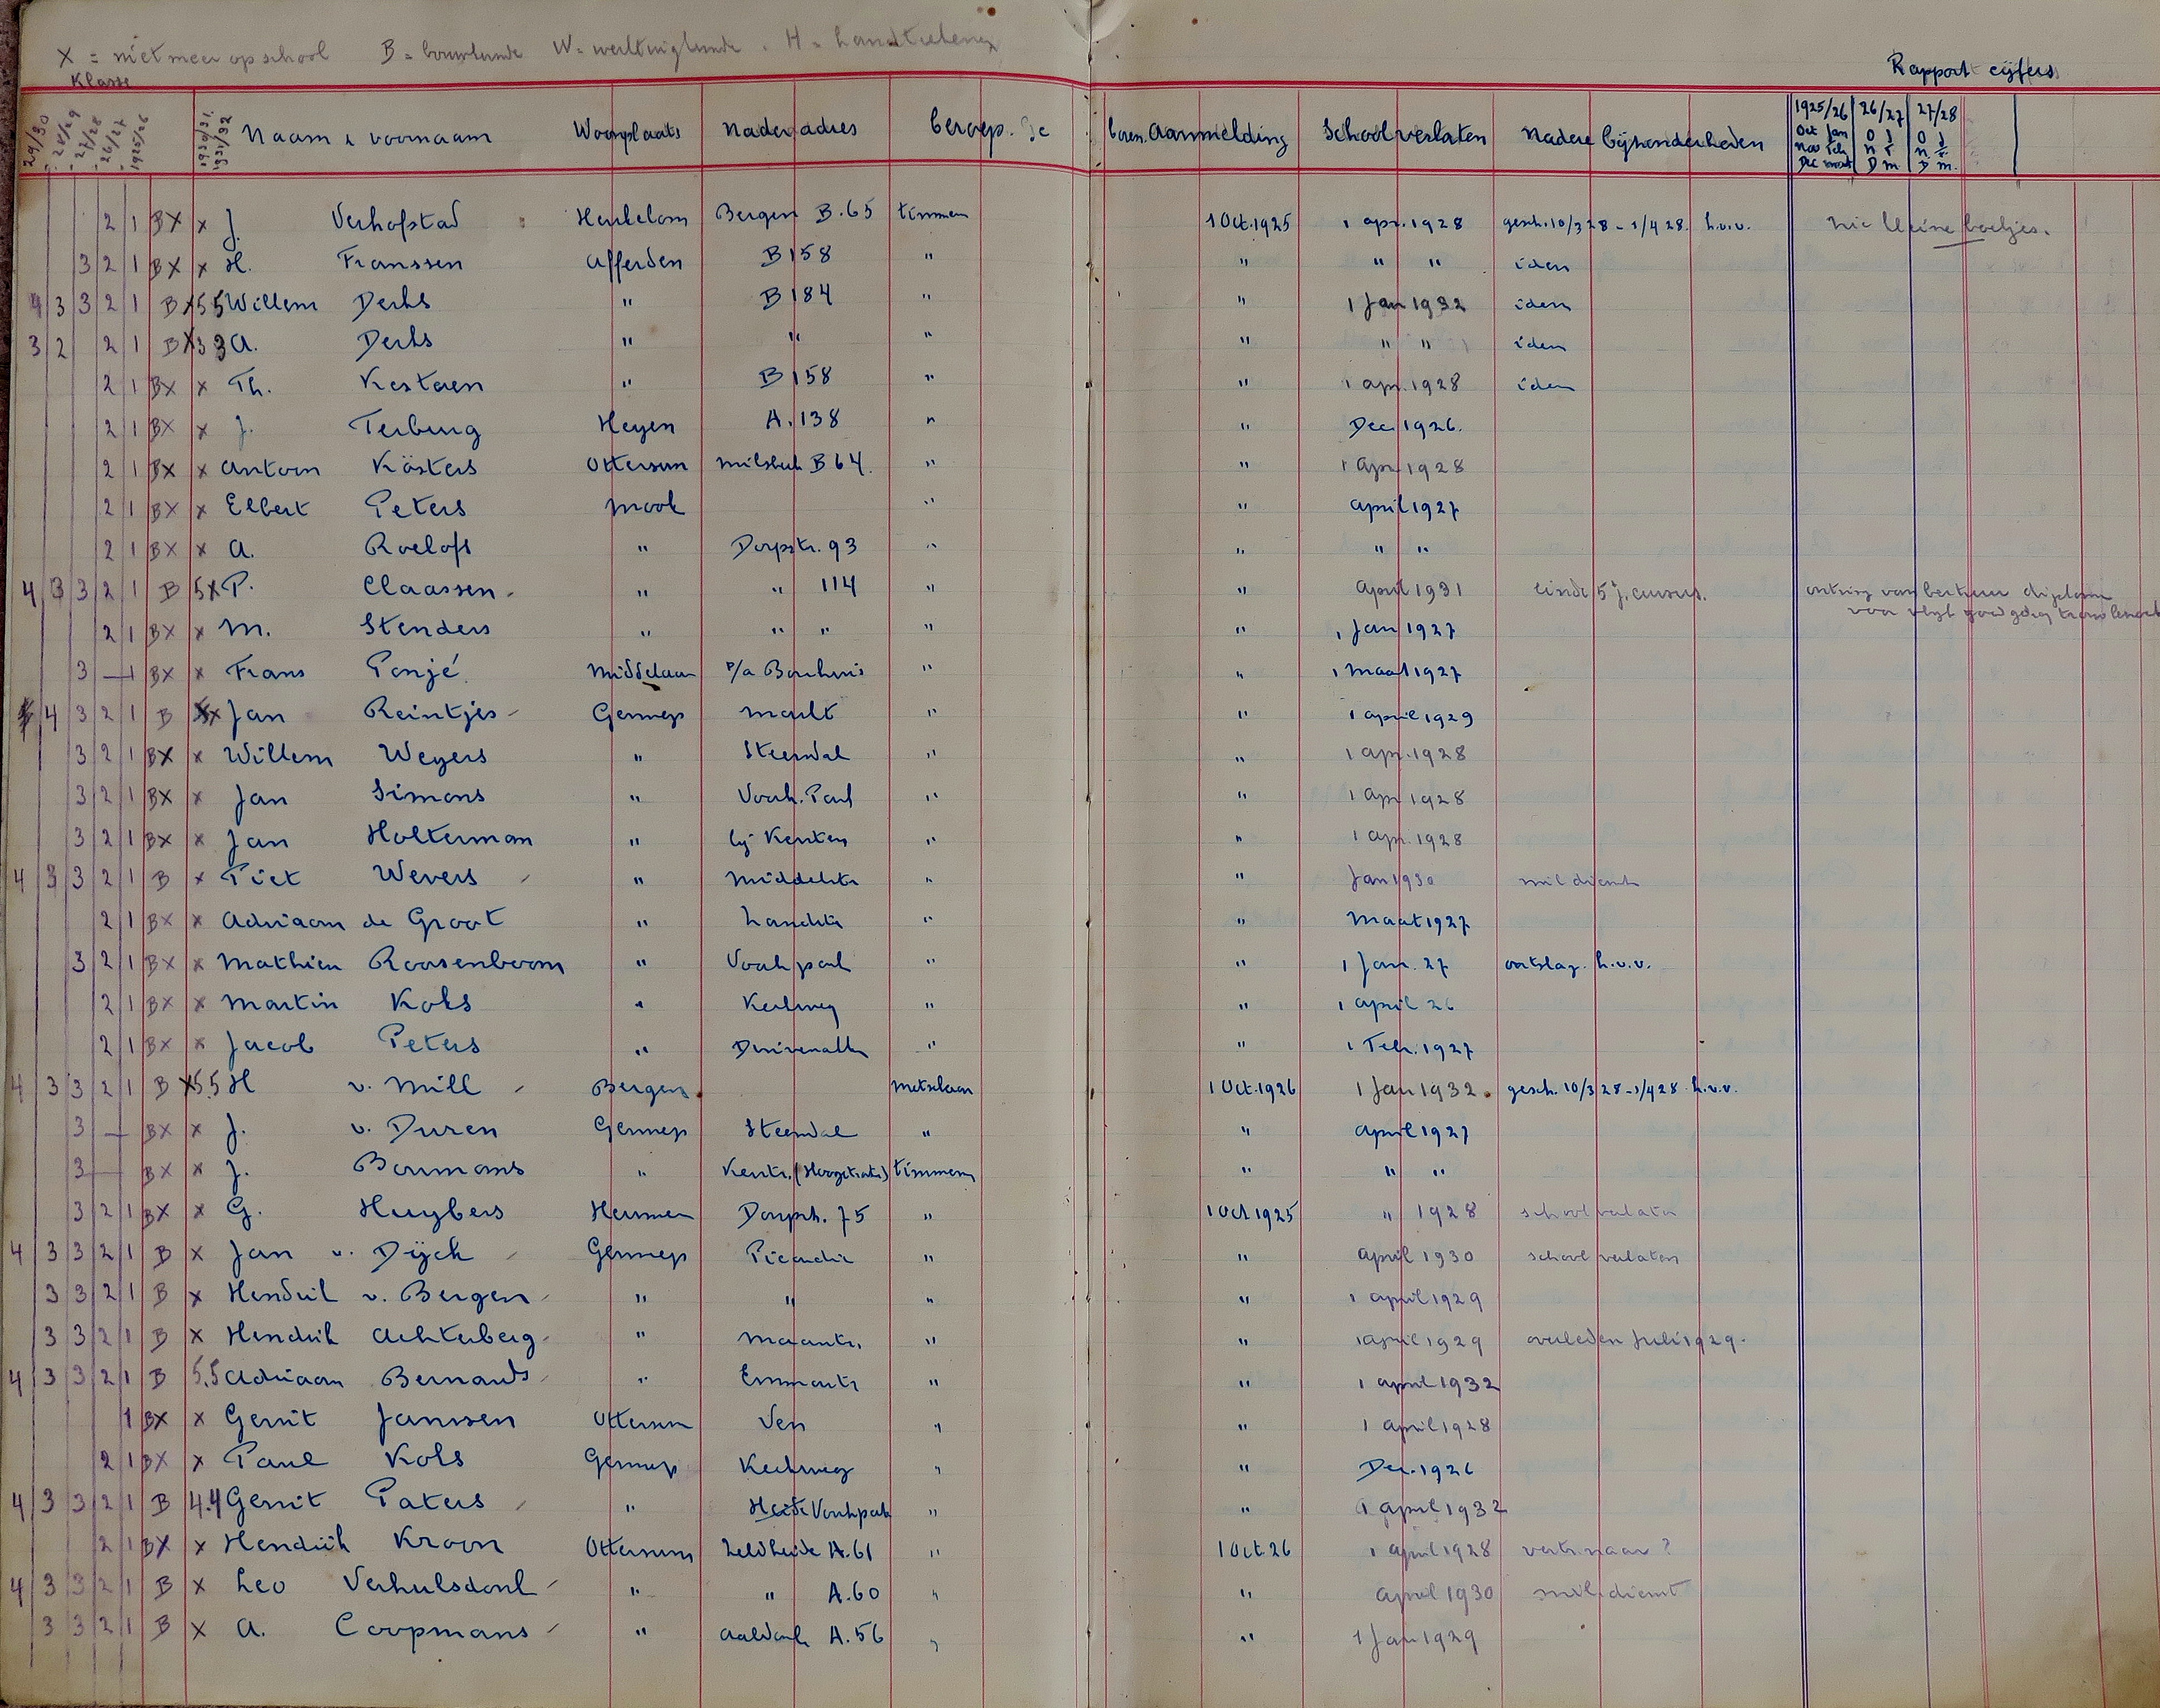 X = niet meer op school B = bouwkunde W = werktuigkunde . H = handteekenen
Klasse
Rapport cijfers
29/30 28/29 27/28 26/27 1925/26 1930/31. 1931/32 Naam & voornaam Woonplaats Nader adres beroep. Aanmelding School verlaten Nadere bijzonderheden 1925/26 26/27 27/28
Oct Jan O J O J
Nov Feb N F N F
Dec maart D M D M.
2 1 BX x J. Verhofstad Heukelom Bergen B.65 timmerm 1 Oct.1925 1 apr. 1928 gesch. 10/3 28 - 1/4 28. h.v.v. zie kleine boekjes.
3 2 1 BX x H. Franssen Afferden B 158 " " " " idem
4 3 3 2 1 B X 5 5 Willem Derks " B 184 " " 1 Jan 1932 idem
3 2 2 1 B X 3 3 A. Derks " " " " " " idem
2 1 BX x Th. Kersten " B 158 " " 1 apr. 1928 idem
2 1 BX x J. Terburg Heyen A. 138 " " Dec 1926.
2 1 BX x Antoon Kösters Ottersum Milsbeek B 64. " " 1 Apr 1928
2 1 BX x Elbert Peters Mook " " april 1927
2 1 BX x A. Roelofs " Dorpstr. 93 " " " "
4 3 3 2 1 B 5 X P. Claassen " " 114 " " April 1931 einde 5 j. cursus. diploma
voor vlijt goed gedrag
2 1 BX x M. Stenders " " " " " 1 Jan 1927
3 — 1 BX x Frans Ponjé Middelaar P/a Bouhuis " " 1 maart 1927
4 3 2 1 B x Jan Reintjes Gennep Markt " " 1 april 1929
3 2 1 BX x Willem Weyers " Steendal " " 1 apr. 1928
3 2 1 BX x Jan Simons " Voorh. Park " " 1 apr 1928
3 2 1 BX x Jan Holterman " bij Kerken " " 1 apr. 1928
4 3 3 2 1 B x Piet Wevers " Middelstr " " Jan 1930 mil dienst
2 1 BX x Adriaan de Groot " Zandstr " " Maart 1927
3 2 1 BX x Mathieu Roosenboom " Voorh park " " 1 Jan. 27 ontslag. h.v.v.
2 1 BX x Martin Koks " Kerkweg " " 1 april 26
2 1 BX x Jacob Peters " " " 1 Feb. 1927
4 3 3 2 1 B X 5.5 H v. Mill Bergen metselaar 1 Oct.1926 1 Jan 1932 gesch. 10/3 28 - 1/4 28 h.v.v.
3 — BX x J. v. Duren Gennep Steendal " " april 1927
3 — BX x J. Boumans " Kerkstr. (Hoogstraat) timmerm " " "
3 2 1 BX x G. Huybers Heumen Dorpstr. 75 " 1 Oct 1925 " 1928 school verlaten
4 3 3 2 1 B x Jan v. Dijck Gennep Picardie " " april 1930 school verlaten
3 3 2 1 B x Hendrik v. Bergen " " " " 1 april 1929
3 3 2 1 B x Hendrik Achterberg " Maasstr. " " 1 april 1929 overleden Juli 1929.
4 3 3 2 1 B 5.5 Adriaan Bernards " Emmastr " " 1 april 1932
1 BX x Gerrit Janssen Ottersum Ven " " 1 april 1928
2 1 BX x Paul Koks Gennep Kerkweg " " Dec. 1926
4 3 3 2 1 B 4.4 Gerrit Peters " Heide Voorhpark " " 1 april 1932
2 1 BX x Hendrik Kroon Ottersum Zelderheide A.61 " 1 Oct.26 1 april 1928 vertr. naar ?
4 3 3 2 1 B x Leo Verhulsdonk " " A.60 " " april 1930 mil. dienst
3 3 2 1 B x A. Coopmans " Aaldonk A.56 " " 1 Jan 1929